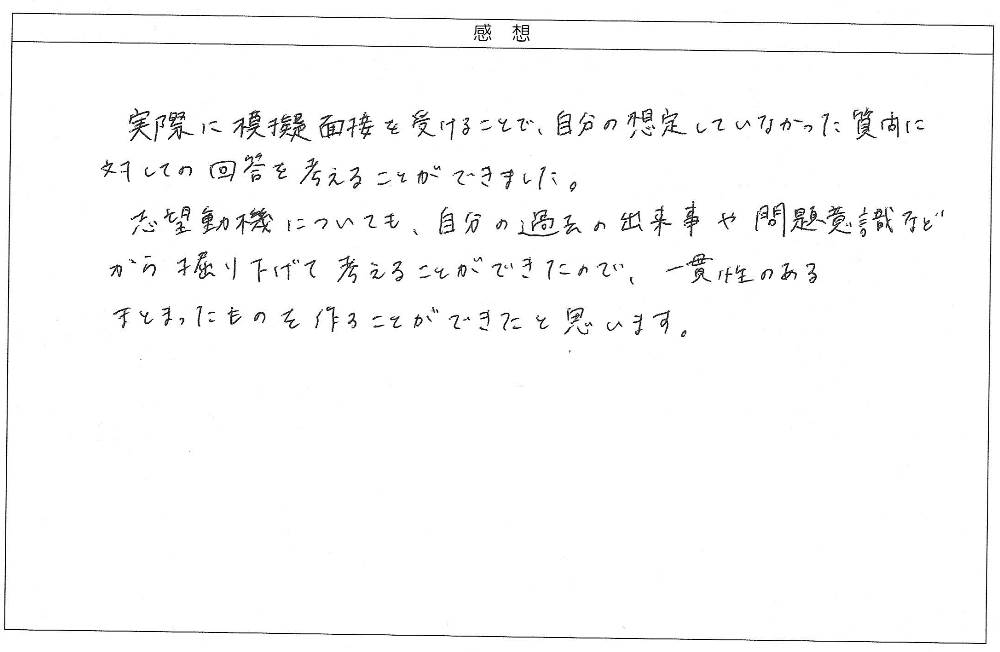 感想
実際に模擬面接を受けることで、自分の想定していなかった質問に
対しての回答を考えることができました。
志望動機についても、自分の過去の出来事や問題意識など
から掘り下げて考えることができたので、一貫性のある
まとまったものを作ることができたと思います。